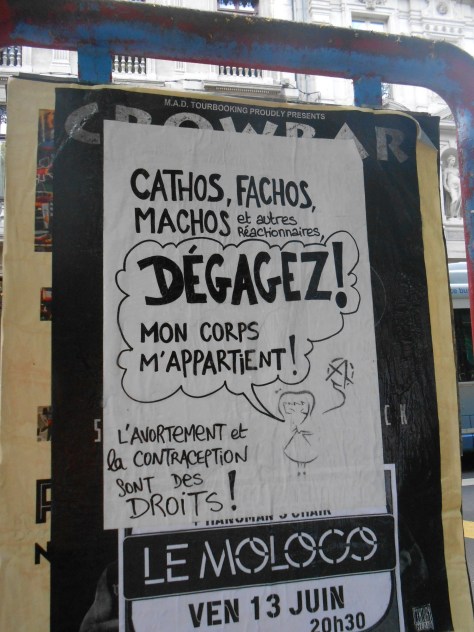 M.A.D. TOURBOOKING PROUDLY PRESENTS
CROWBAR
CATHOS, FACHOS,
MACHOS et autres
Réactionnaires,
DÉGAGEZ!
MON CORPS
M'APPARTIENT!
L'AVORTEMENT et
la CONTRACEPTION
SONT DES
DROITS!
+ HANGMAN'S CHAIR
LE MOLOCO
VEN 13 JUIN
20h30